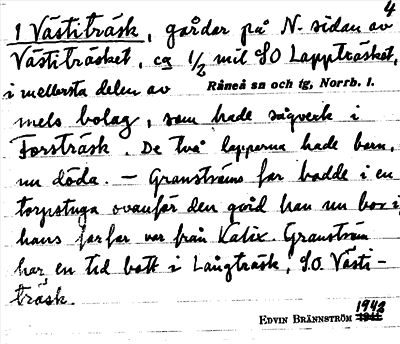 4
1 Västiträsk, gårdar på N. sidan av
Västiträsket, ca 1/2 mil SO Lappträsket,
i mellersta delen av Råneå sn och tg, Norrb. l.
mels bolag, som hade sågverk i
Forsträsk. De två lapparna hade barn,
nu döda. – Granströms far bodde i en
torpstuga ovanför den gård han nu bor i,
hans farfar var från Kalix. Granström
har en tid bott i Långträsk, S.O. Västi-
träsk.
EDVIN BRÄNNSTRÖM 1942